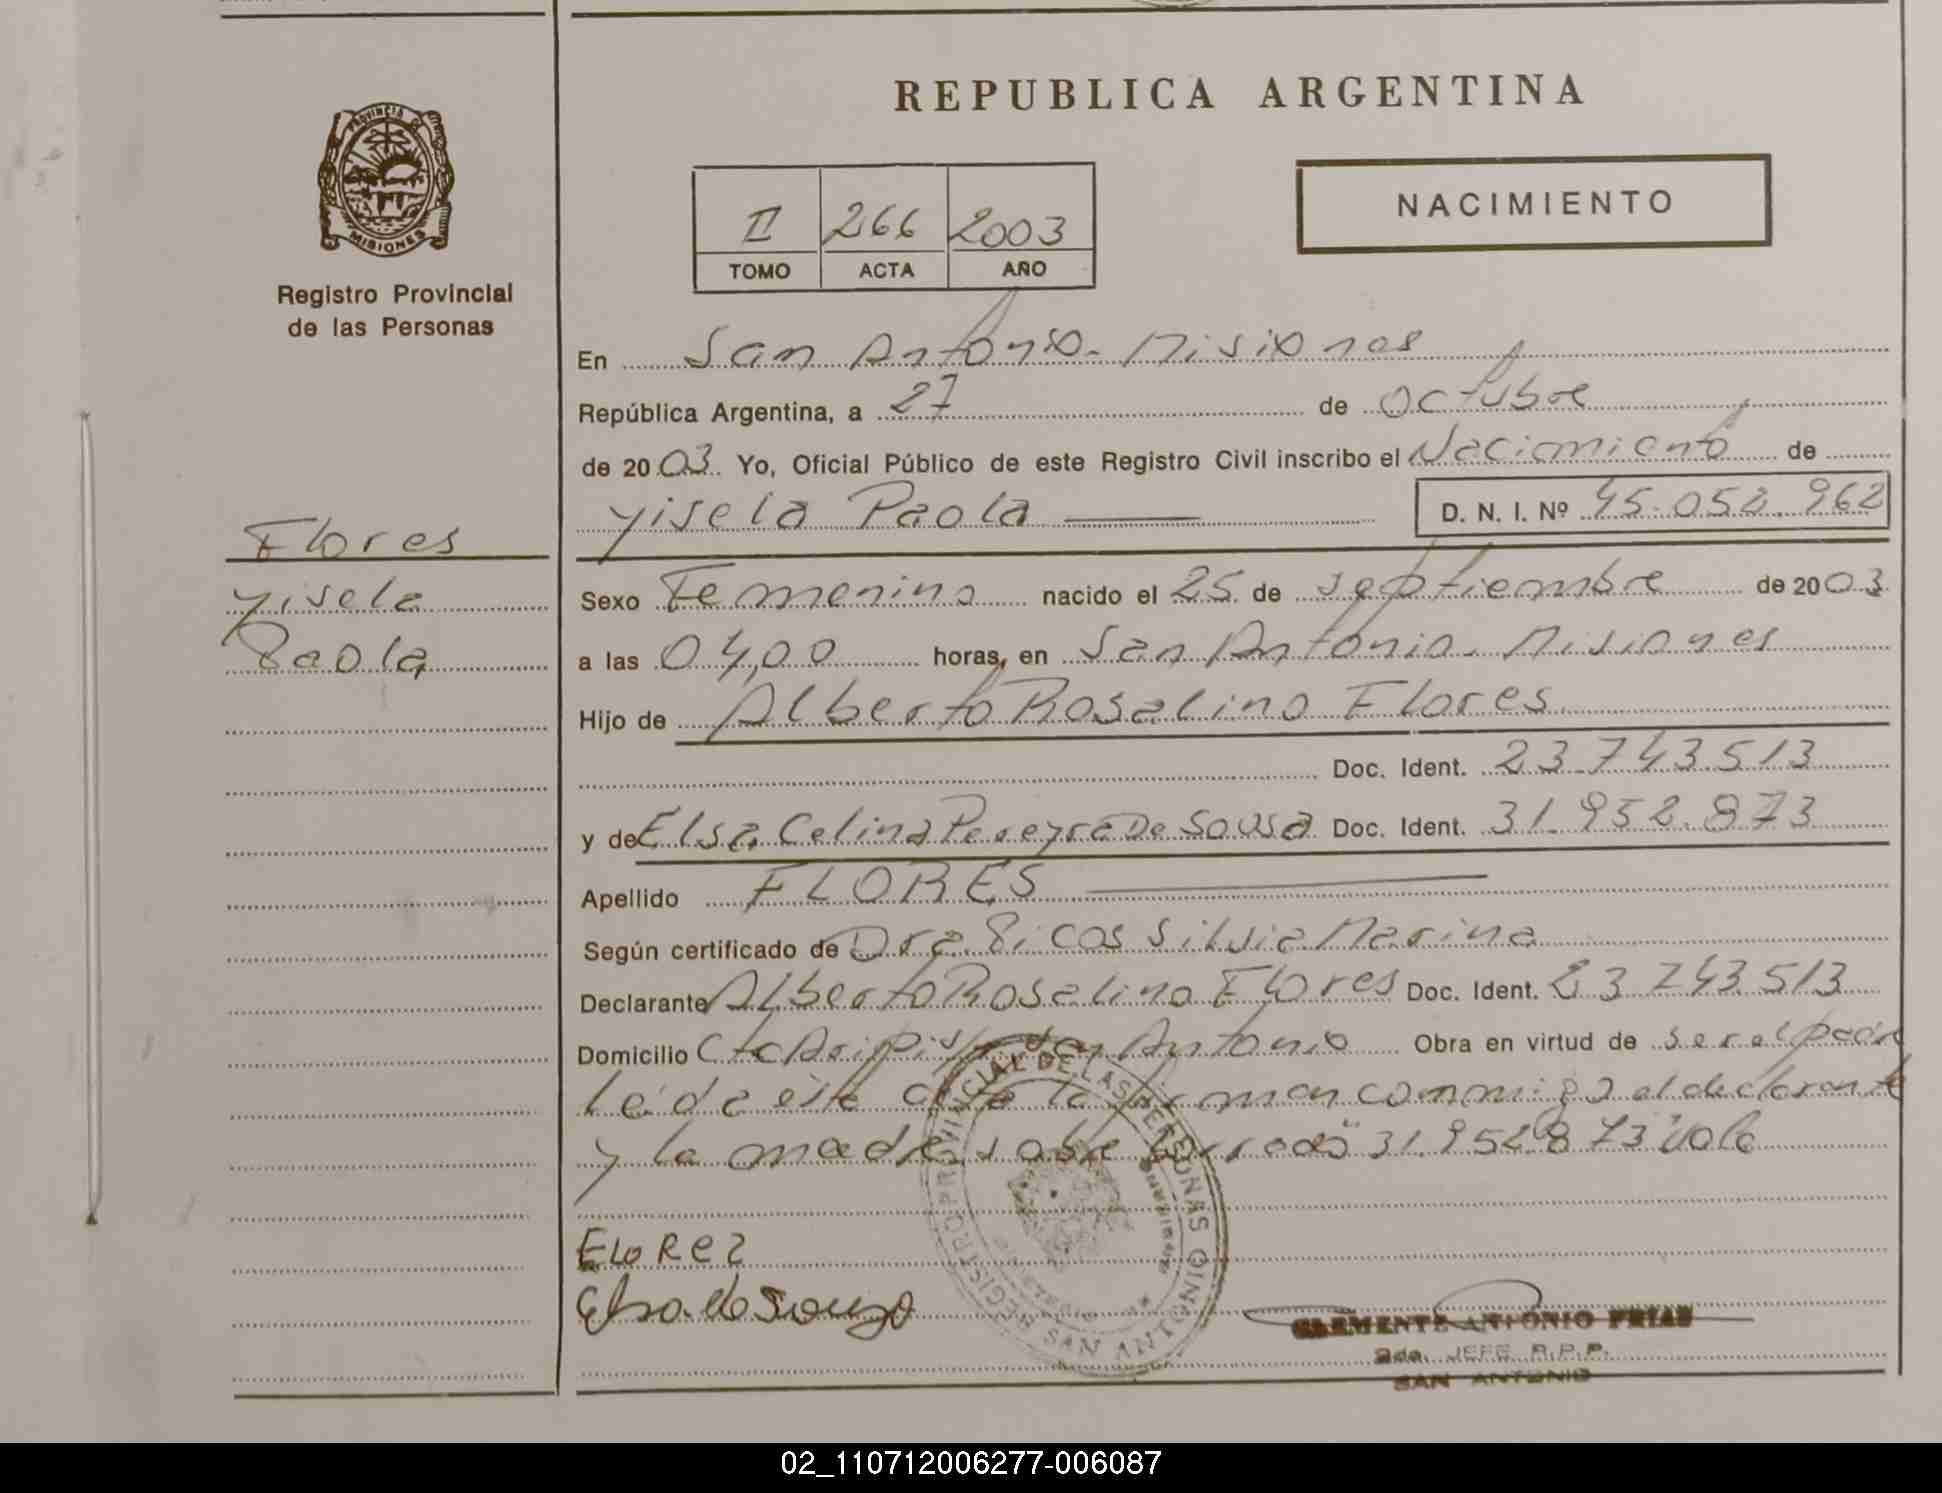 REPUBLICA ARGENTINA
PROVINCIA DE
MISIONES
Registro Provincial
de las Personas
II 266 2003
TOMO ACTA AÑO
NACIMIENTO
En San Antonio - Misiones
República Argentina, a 27 de Octubre
de 2003 Yo, Oficial Público de este Registro Civil inscribo el Nacimiento de
Yisela Paola D. N. I. Nº 45.052.962
Flores
Yisela
Paola
Sexo Femenino nacido el 25 de Septiembre de 2003
a las 04,00 horas, en San Antonio. Misiones
Hijo de Alberto Rosalino Flores
Doc. Ident. 23.743.513
y de Elsa Celina Pereyra De Sousa Doc. Ident. 31.952.873
Apellido FLORES
Según certificado de Dra. Silvia Marina
Declarante Alberto Rosalino Flores Doc. Ident. 23.743513
Domicilio San Antonio Obra en virtud de ser el padre
leída este acta la firman conmigo el declarante
y la madre, sobre borrado "31.952.873" vale
FLORES
Elsa de Souza
REGISTRO PROVINCIAL DE LAS PERSONAS
SAN ANTONIO
CLEMENTE ANTONIO FRIAS
2do. JEFE R.P.P.
SAN ANTONIO
02_110712006277-006087